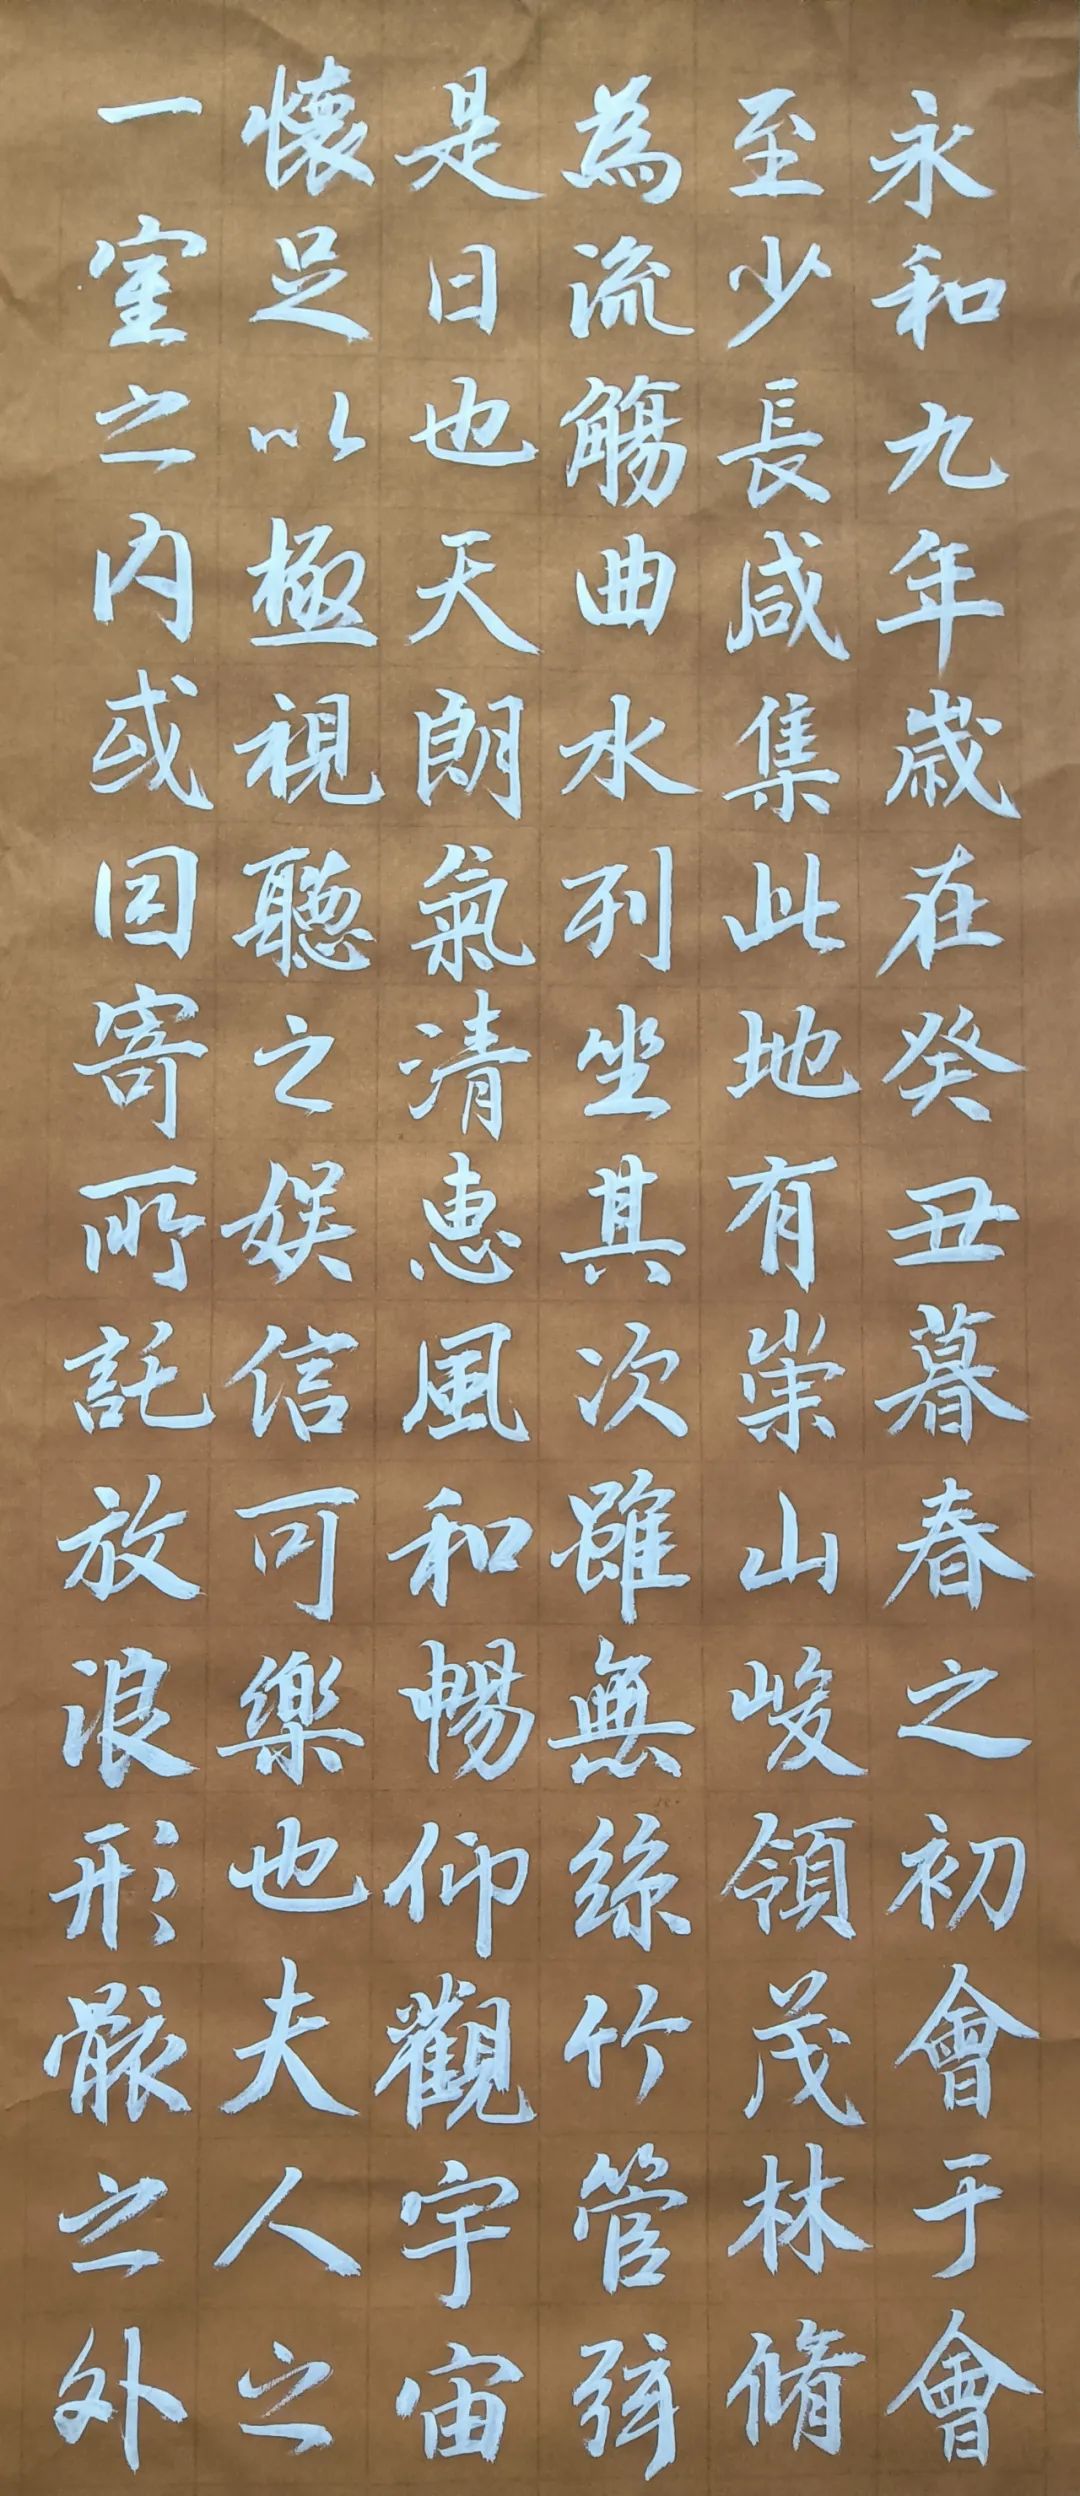 永和九年歲在癸丑暮春之初會于會
至少長咸集此地有崇山峻領茂林脩
為流觴曲水列坐其次雖無絲竹管弦
是日也天朗氣清惠風和暢仰觀宇宙
懷足以極視聽之娛信可樂也夫人之
一室之內或因寄所託放浪形骸之外